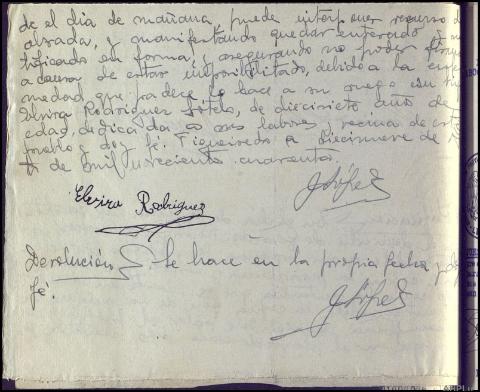 de el dia de mañana, puede interponer recurso de
alzada, y manifestando quedar enterado
tificado en forma, y asegurando no poder firmar
a causa de estar imposibilitado, debido a la enfer
medad que padece lo hace a su ruego su hi
Elvira Rodriguez Sótelo, de diecisiete años de
edad, dedicada a sus labores y vecina de este
pueblo y doy fé. Figueiredo a diecinueve de
de mil novecientos cuarenta.
Elvira Rodriguez
J López
Devolución. Se hace en la propia fecha y doy
fé.
J López